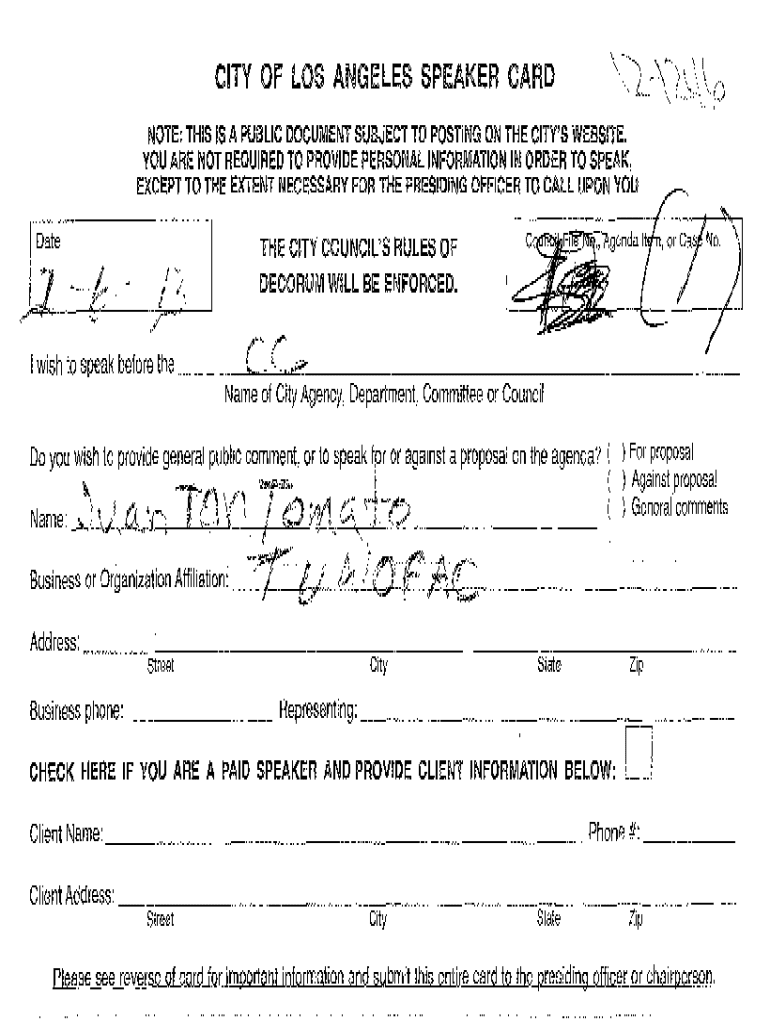 CITY OF LOS ANGELES SPEAKER CARD
NOTE: THIS IS A PUBLIC DOCUMENT SUBJECT TO POSTING ON THE CITY'S WEBSITE.
YOU ARE NOT REQUIRED TO PROVIDE PERSONAL INFORMATION IN ORDER TO SPEAK,
EXCEPT TO THE EXTENT NECESSARY FOR THE PRESIDING OFFICER TO CALL UPON YOU
Date
THE CITY COUNCIL'S RULES OF
DECORUM WILL BE ENFORCED.
Council File No., Agenda Item, or Case No.
(1)
I wish to speak before the CC
Name of City Agency, Department, Committee or Council
Do you wish to provide general public comment, or to speak for or against a proposal on the agenda? ( ) For proposal
( ) Against proposal
( ) General comments
Name: Juan Tomato
Business or Organization Affiliation:
Address:
Street City State Zip
Business phone: Representing:
CHECK HERE IF YOU ARE A PAID SPEAKER AND PROVIDE CLIENT INFORMATION BELOW:
Client Name: Phone #:
Client Address:
Street City State Zip
Please see reverse of card for important information and submit this entire card to the presiding officer or chairperson.